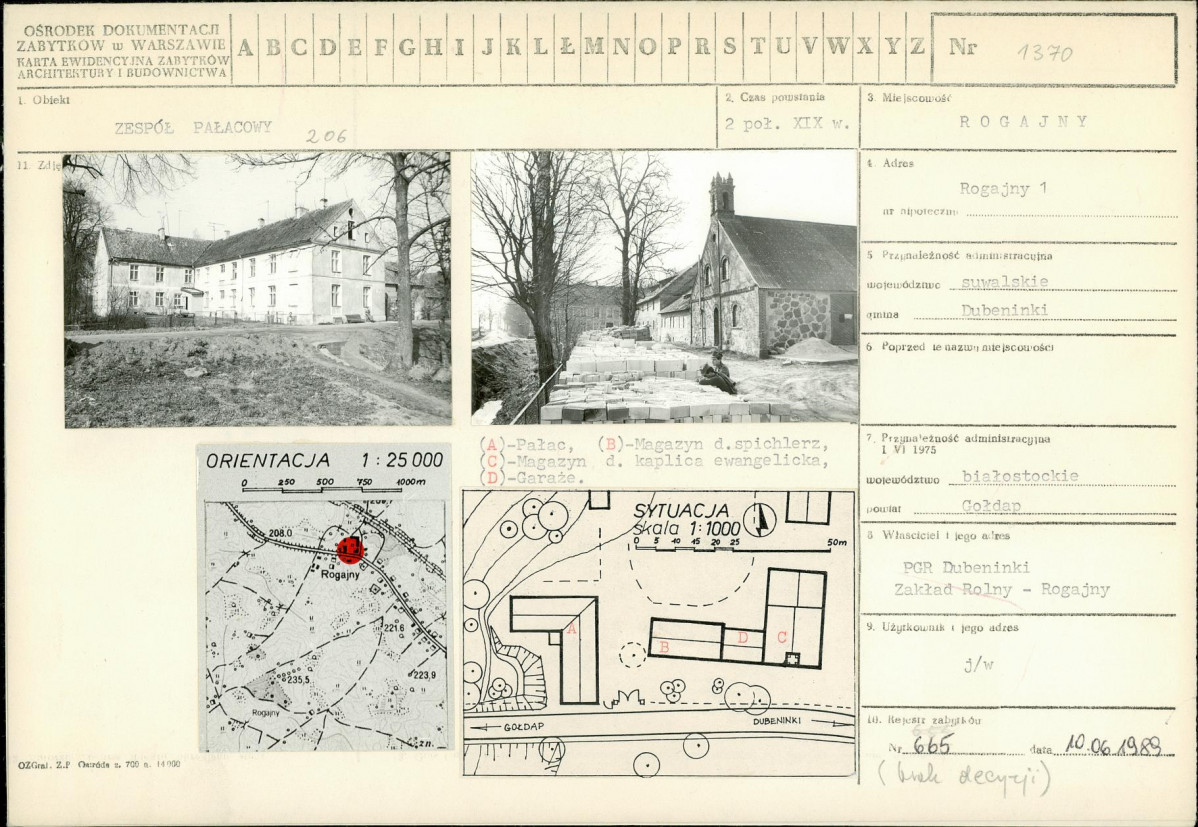 OŚRODEK DOKUMENTACJI
ZABYTKÓW w WARSZAWIE
KARTA EWIDENCYJNA ZABYTKÓW
ARCHITEKTURY I BUDOWNICTWA
A B C D E F G H I J K L Ł M N O P R S T U V W X Y Z
Nr 1370
1. Obiekt
ZESPÓŁ PAŁACOWY 206
2. Czas powstania
2 poł. XIX w.
3. Miejscowość
ROGAJNY
11. Zdję
4. Adres
Rogajny 1
nr hipoteczny
5 Przynależność administracyjna
województwo suwalskie
gmina Dubeninki
6. Poprzednie nazwy miejscowości
7. Przynależność administracyjna
1 VI 1975
województwo białostockie
powiat Gołdap
8 Właściciel i jego adres
PGR Dubeninki
Zakład Rolny - Rogajny
9. Użytkownik i jego adres
j/w
10. Rejestr zabytków
Nr 665 data 10.06.1989
(brak decyzji)
(A)-Pałac, (B)-Magazyn d.spichlerz,
(C)-Magazyn d. kaplica ewangelicka,
(D)-Garaże.
ORIENTACJA 1:25 000
0 250 500 750 1000m
208.0
Rogajny
221.6
223,9
235,5
Rogajny
z n.
SYTUACJA
skala 1:1000
0 5 10 15 20 25 50m
A
B
D
C
GOŁDAP
DUBENINKI
OZGraf. Z.P Ostróda z. 700 n. 14 000